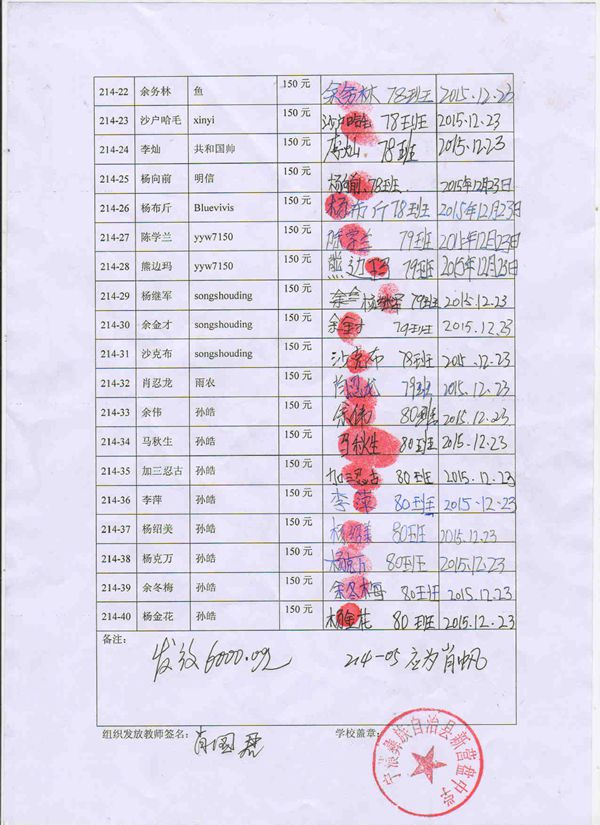 214-22 余务林 鱼 150 元 余务林 78班 2015.12.23
214-23 沙户哈毛 xinyi 150 元 沙户哈毛 78班 2015.12.23
214-24 李灿 共和国帅 150 元 李灿 78班 2015.12.23
214-25 杨向前 明信 150 元 杨向前 78班. 2015年12月23日
214-26 杨布斤 Bluevivis 150 元 杨布斤 78班 2015年12月23日
214-27 陈学兰 yyw7150 150 元 陈学兰 79班 2015年12月23日
214-28 熊边玛 yyw7150 150 元 熊边玛 79班 2015年12月23日
214-29 杨继军 songshouding 150 元 余金 杨继军 79班 2015.12.23
214-30 余金才 songshouding 150 元 余金才 79班 2015.12.23
214-31 沙克布 songshouding 150 元 沙克布 78班 2015.12.23
214-32 肖忍龙 雨农 150 元 肖忍龙 79班 2015.12.23
214-33 余伟 孙皓 150 元 余伟 80班 2015.12.23
214-34 马秋生 孙皓 150 元 马秋生 80班 2015.12.23
214-35 加三忍古 孙皓 150 元 加三忍古 80班 2015.12.23
214-36 李萍 孙皓 150 元 李萍 80班 2015.12.23
214-37 杨绍美 孙皓 150 元 杨绍美 80班 2015.12.23
214-38 杨克万 孙皓 150 元 杨克万 80班 2015.12.23
214-39 余冬梅 孙皓 150 元 余冬梅 80班 2015.12.23
214-40 杨金花 孙皓 150 元 杨金花 80班 2015.12.23
备注:
发放6000.00元 214-05 应为肖帆
组织发放教师签名: 肖国 学校盖章:
宁蒗彝族自治县新营盘中学